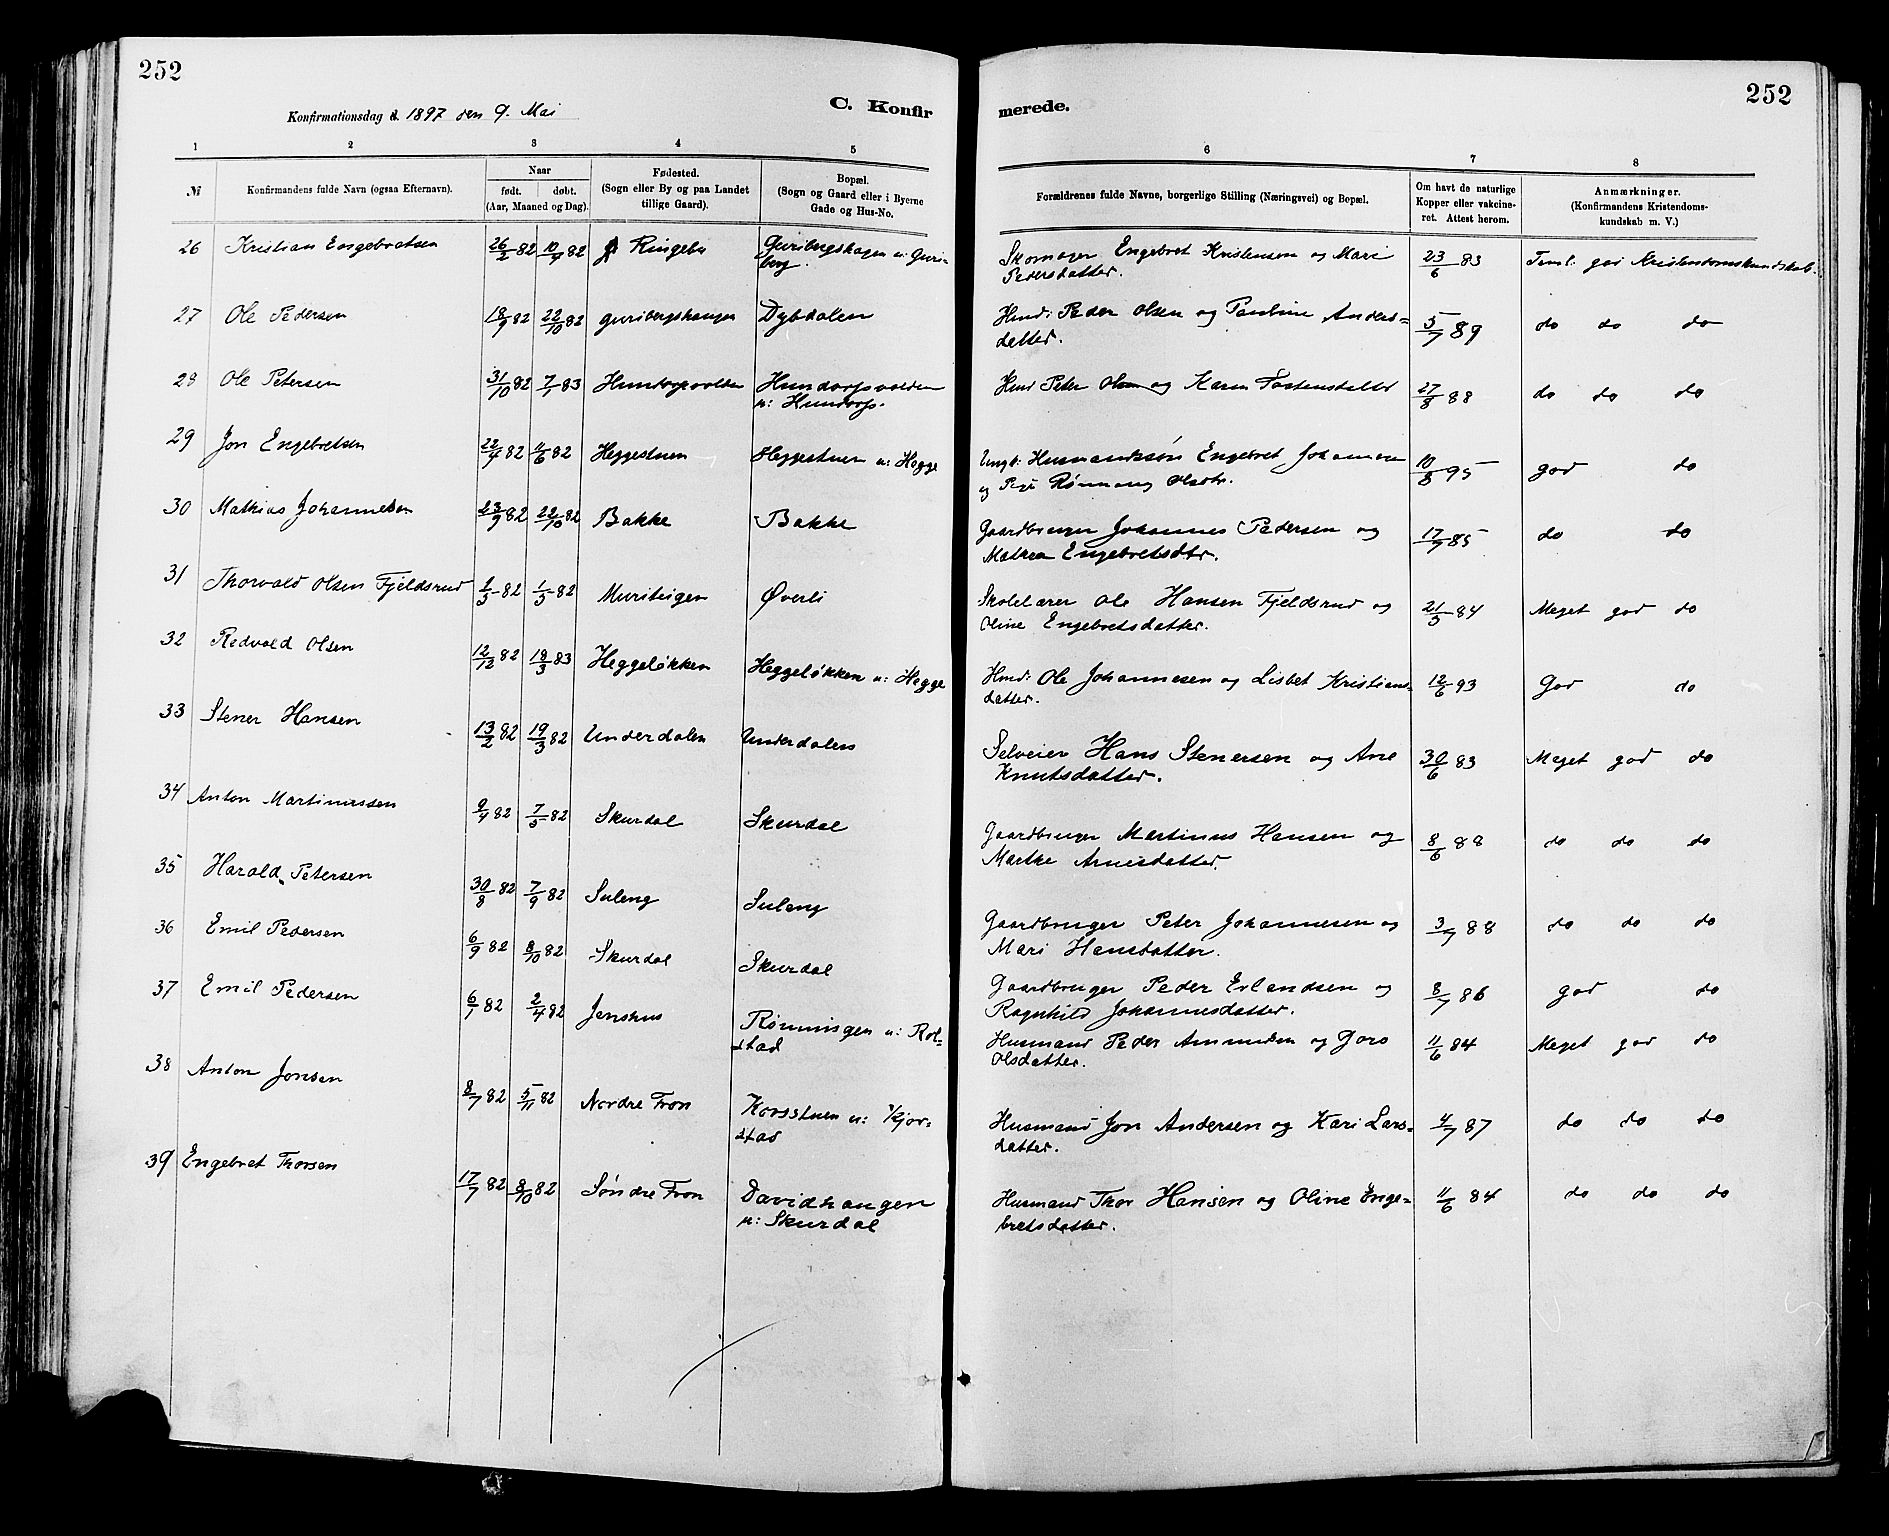 252
252
Konfirmationsdag d. 1897 den 9. Mai
C. Konfir merede.
1 2 3 4 5 6 7 8
№ Konfirmandens fulde Navn (ogsaa Efternavn). Naar født. døbt. (Aar, Maaned og Dag). Fødested. (Sogn eller By og paa Landet tillige Gaard). Bopæl. (Sogn og Gaard eller i Byerne Gade og Hus-No. Forældrenes fulde Navne, borgerlige Stilling (Næringsvei) og Bopæl. Om havt de naturlige Kopper eller vakcineret. Attest herom. Anmærkninger. (Konfirmandens Kristendomskundskab m. V.)
26 Kristian Engebretsen 26/2 82 10/4 82 Ringebu Guribergshagen u: Guriberg. Skomager Engebret Kristensen og Mari Pedersdatter. 23/6 83 Teml: god Kristendomskundskab.
27 Ole Pedersen 18/9 82 22/10 82 Guribergshaugen Dybdalen Hmd: Peder Olsen og Pauline Andersdatter. 5/7 89 do do do
28 Ole Petersen 31/10 82 7/1 83 Hundorpvolden Hundorpvolden u: Hundorp. Hmd Peter Olsen og Karen Tostensdatter 27/8 88 do do do
29 Jon Engebretsen 22/4 82 11/6 82 Heggestuen Heggestuen u: Hegge Ungk: Husmandssøn Engebret Johannesen og Pige Rønnaug Olsdtr. 10/8 95 god do
30 Mathias Johannesen 23/9 82 22/10 82 Bakke Bakke Gaardbruger Johannes Pedersen og Mathea Engebretsdtr. 17/7 85 do do
31 Thorvald Olsen Fjeldsrud 1/3 82 1/5 82 Muriteigen Øverli Skolelærer Ole Hansen Fjeldsrud og Oline Engebretsdatter. 21/5 84 Meget god do
32 Redvald Olsen 12/12 82 18/3 83 Heggeløkken Heggeløkken u: Hegge Hmd: Ole Johannesen og Lisbet Kristiansdatter. 12/6 93 God do
33 Stener Hansen 13/2 82 19/3 82 Underdalen Underdalen Selveier Hans Stenersen og Ane Knutsdatter. 30/6 83 Meget god do
34 Anton Martinussen 9/4 82 7/5 82 Skurdal Skurdal Gaardbruger Martinus Hansen og Marthe Arnesdatter. 8/6 88 do do do
35 Harald Petersen 30/8 82 7/9 82 Suleng Suleng Gaardbruger Peter Johannesen og Mari Hansdatter. 3/7 88 do do do
36 Emil Pedersen 6/9 82 8/10 82 Skurdal Skurdal Gaardbruger Peder Erlandsen og Ragnhild Johannesdatter. 8/7 86 god do
37 Emil Pedersen 6/1 82 2/4 82 Jenshus Rønningen u: Rolstad Husmand Peder Amundsen og Goro Olsdatter. 11/6 84 Meget god do
38 Anton Jonsen 8/7 82 5/11 82 Nordre Fron Korsstuen u: Kjorstad Husmand Jon Andersen og Kari Larsdatter. 4/7 87 do do do
39 Engebret Thorsen 17/7 82 8/10 82 Søndre Fron Davidhaugen u: Skurdal Husmand Thor Hansen og Oline Engebretsdatter. 11/6 84 do do do